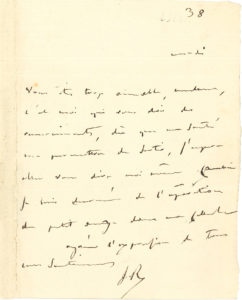 38
mardi
Vous êtes trop aimable, madame,
c'est moi qui vous dois des
remerciements, dès que ma santé
me permettra de sortir, j'espère
aller vous dire moi même combien
je suis de l'opération
du petit dans une
ayez l'expression de tous
mes sentiments